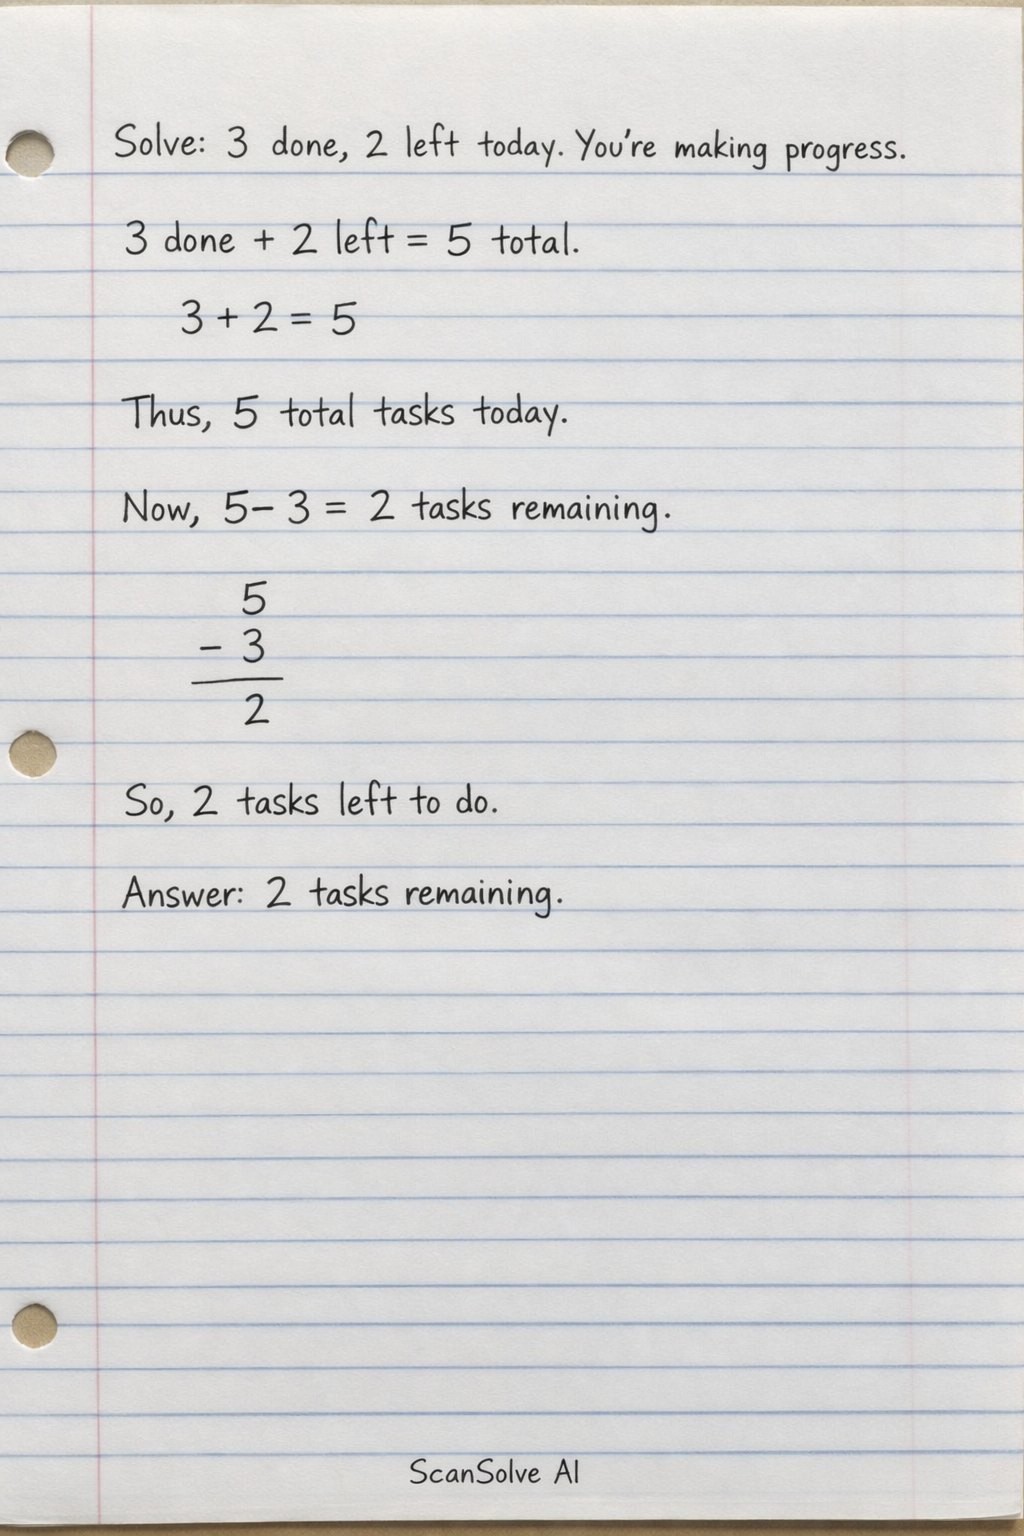 Solve: 3 done, 2 left today. You're making progress.
3 done + 2 left = 5 total.
3 + 2 = 5
Thus, 5 total tasks today.
Now, 5 - 3 = 2 tasks remaining.
5
- 3
2
So, 2 tasks left to do.
Answer: 2 tasks remaining.
ScanSolve AI